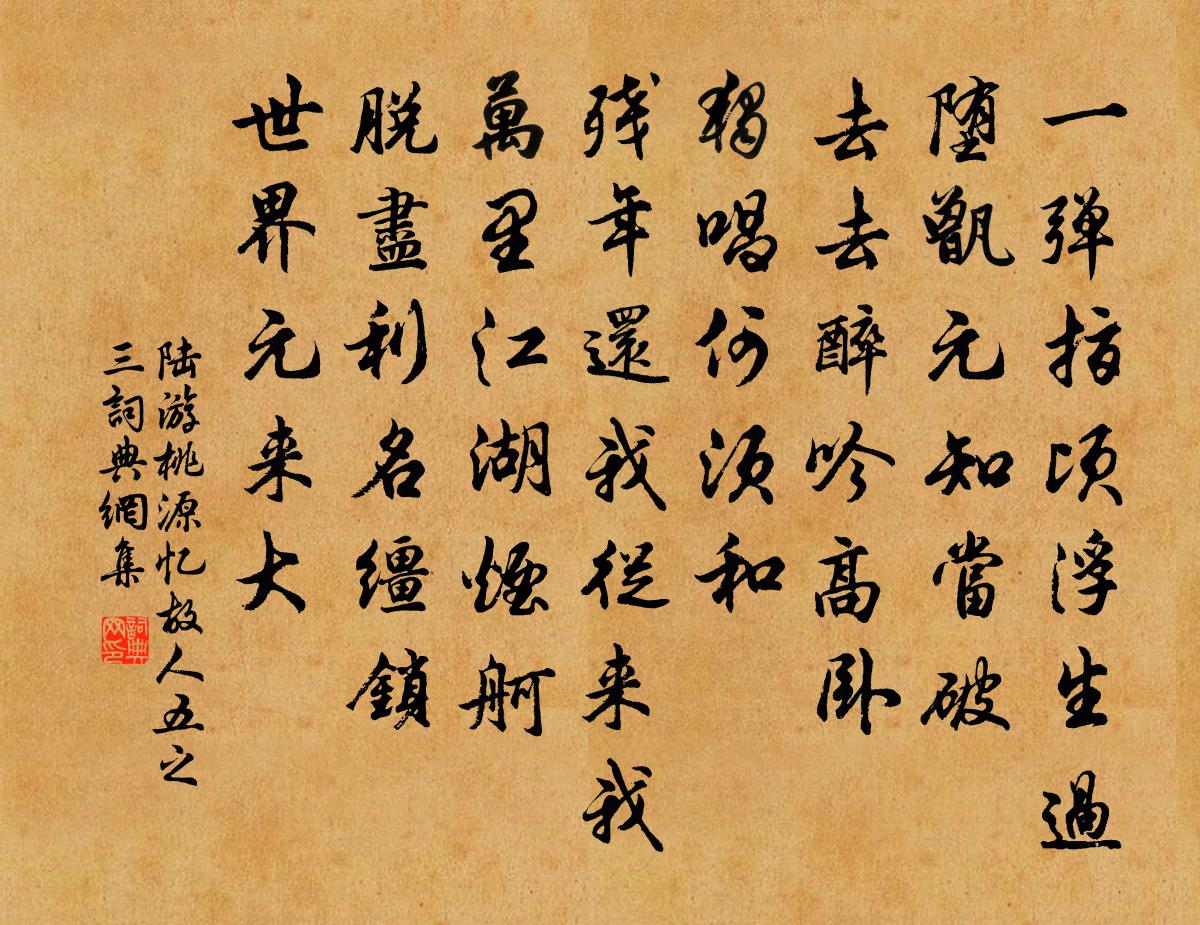 一弹指顷浮生過
堕甑元知當破
去去醉吟高卧
獨唱何须和
残年還我從来我
萬里江湖煙舸
脱盡利名缰鎖
世界元来大
陆游桃源忆故人五之
三詞典網集
詞典网印